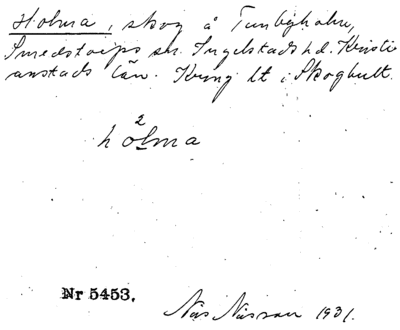 Holma, skog å Tunbyholm,
Smedstorps sn. Ingelstads hd. Kristi
anstads län. Kring lt i Skoghult.
2
hol̲ma
Nr 5453.
Nils Nilsson 1931.